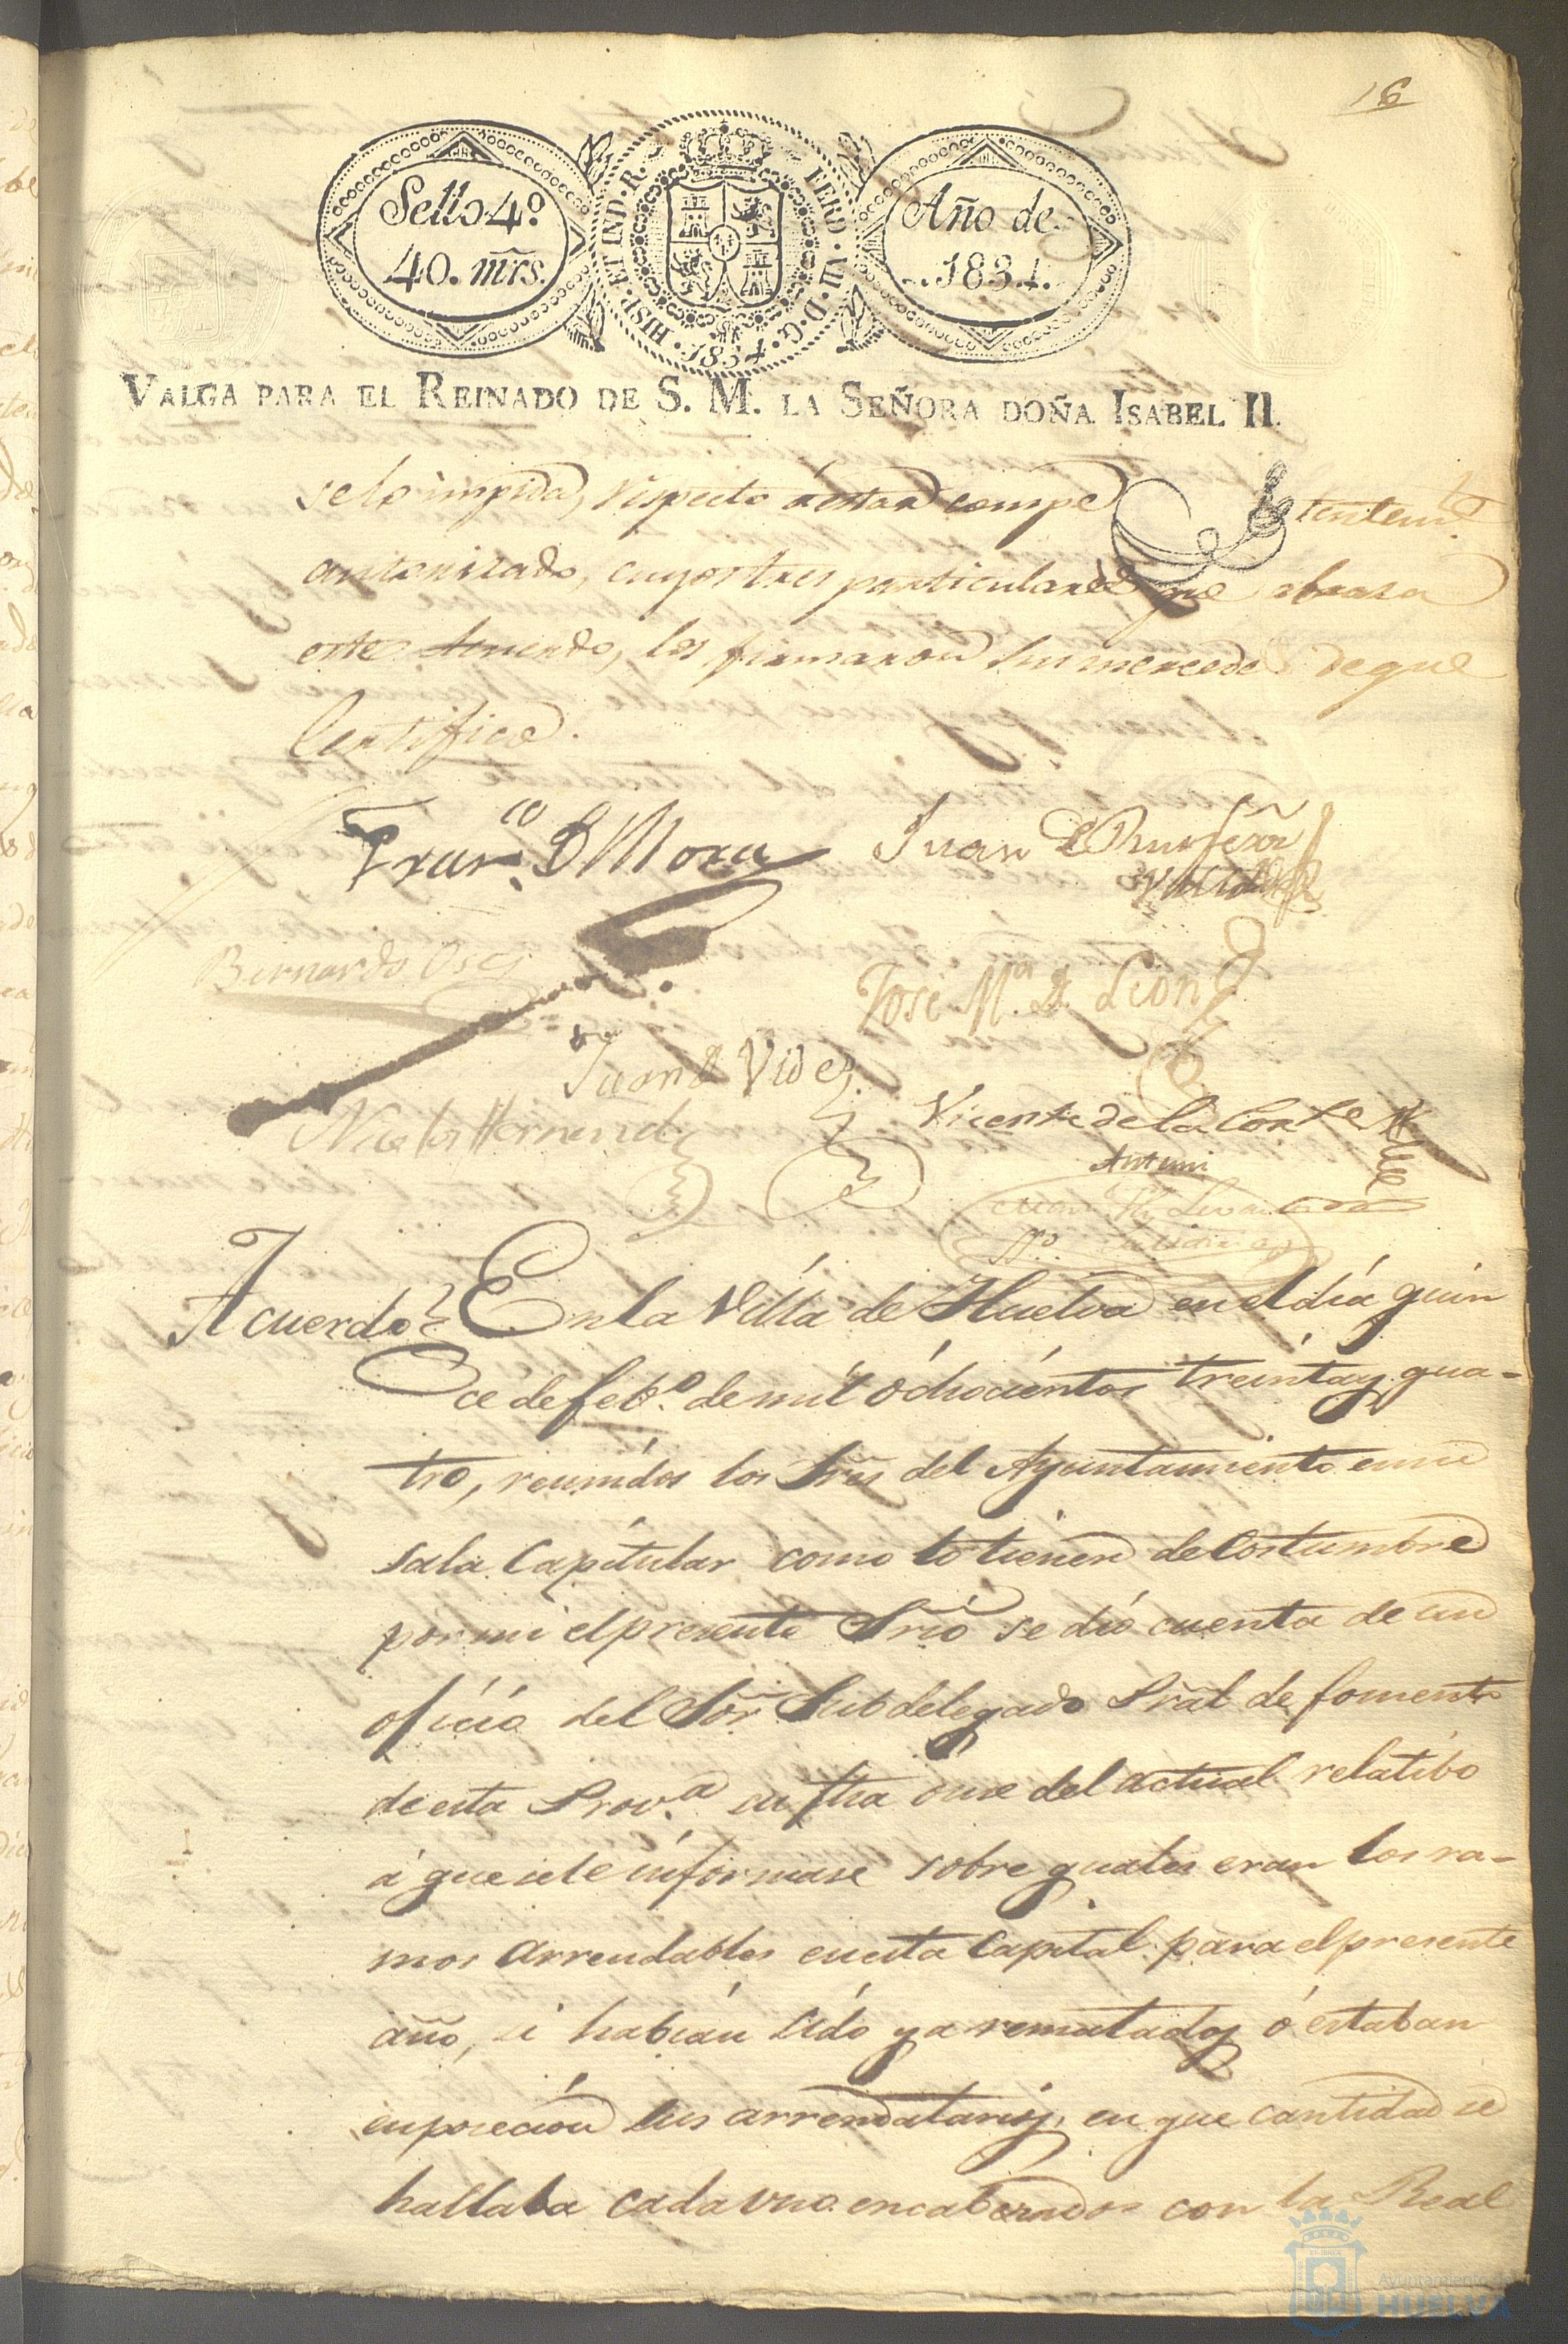 16
Sello 4º
40. mrs.
HISP. ET IND. R.
FERD. VII. D. G.
1834.
Año de
1834.
VALGA PARA EL REINADO DE S. M. LA SEÑORA DOÑA ISABEL II.
se lo impida, respecto á estar compe tentemte
autorizado, cuyos tres particulares que abraza
este Acuerdo, los firmaron sus mercedes de que
Certifico.
Franco D Mora
Juan
Bernardo
José Mª D. Leon
Juan D Vides
Nicolas Hernandez
Vicente de la Corte
Ante mi
Acuerdo
En la Villa de Huelva en el dia quin
ce de febº. de mil ochocientos treinta y qua-
tro, reunidos los Sres del Ayuntamiento en su
sala Capitular como lo tienen de costumbre
por mi el presente Srio se dio cuenta de un
oficio del Sor Subdelegado Pral de fomento
de esta Provª. su fha once del actual relatibo
á que se le informase sobre quales eran los ra-
mos arrendables en esta Capital para el presente
año, si habian sido ya rematados ó estaban
en posecion sus arrendatarios, en que cantidad se
hallaba cada uno encabezados con la Real
Ayuntamiento de
HUELVA